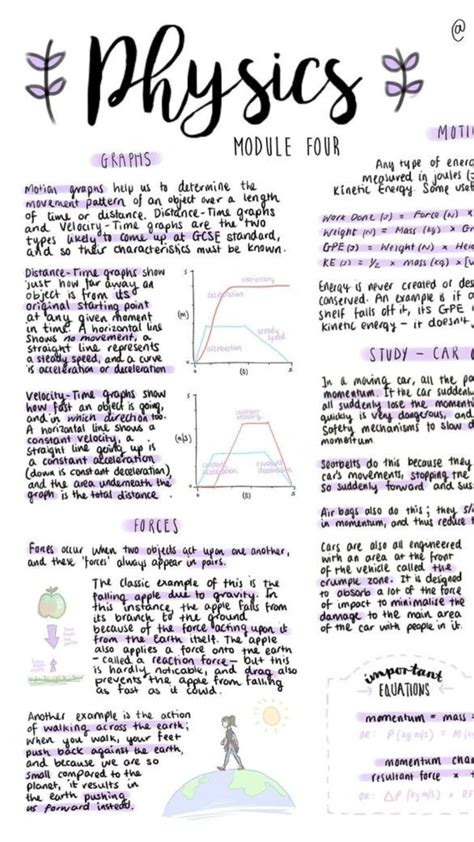 @
Physics
MODULE FOUR
GRAPHS
Motion graphs help us to determine the
movement pattern of an object over a length
of time or distance. Distance-Time graphs
and Velocity-Time graphs are the two
types likely to come up at GCSE standard,
and so their characteristics must be known.
Distance-Time graphs show
just how far away an
object is from its
original starting point
at any given moment
in time. A horizontal line
shows no movement, a
straight line represents
a steady speed, and a curve
is acceleration or deceleration
stationary
deceleration
(m)
steady
speed
acceleration
(s)
Velocity-Time graphs show
how fast an object is going,
and in which direction too.
A horizontal line shows a
constant velocity, a
straight line going up is
a constant acceleration
(down is constant deceleration)
and the area underneath the
graph is the total distance.
constant
velocity
(m/s)
constant
constant
acceleration
deceleration
(s)
FORCES
Forces occur when two objects act upon one another,
and these 'forces' always appear in pairs.
The classic example of this is the
falling apple due to gravity. In
this instance, the apple falls from
its branch to the ground
because of the force acting upon it
from the earth itself. The apple
also applies a force onto the earth
- called a reaction force - but this
is hardly noticable, and drag also
prevents the apple from falling
as fast as it could.
Another example is the action
of walking across the earth;
when you walk, your feet
push back against the earth,
and because we are so
small compared to the
planet, it results in
the earth pushing
us forward instead.
MOTI
Any type of ener
measured in joules (
Kinetic Energy. Some use
Work Done (J) = Force (N) x
Weight (N) = Mass (kg) x Gr
GPE (J) = Weight (N) x Hei
KE (J) = 1/2 x mass (kg) x [v
Energy is never created or des
conserved. An example is if a
shelf falls off it, its GPE
kinetic energy - it doesn't
STUDY - CAR
In a moving car, all the pa
momentum. If the car sudden
all suddenly lose the momenti
quickly is very dangerous, and
Safety mechanisms to slow d
momentum.
Seatbelts do this because they
car's movements, stopping the
so suddenly forward and sus
Air bags also do this; they slo
in momentum, and thus reduce t
Cars are also all engineered
with an area at the front
of the vehicle called the
crumple zone. It is designed
to absorb a lot of the force
of impact to minimalise the
damage to the main area
of the car with people in it.
important
EQUATIONS
momentum = mass
OR: P (kg m/s) = M (k
momentum cha
resultant force x t
OR: ΔP (kg m/s) = RF